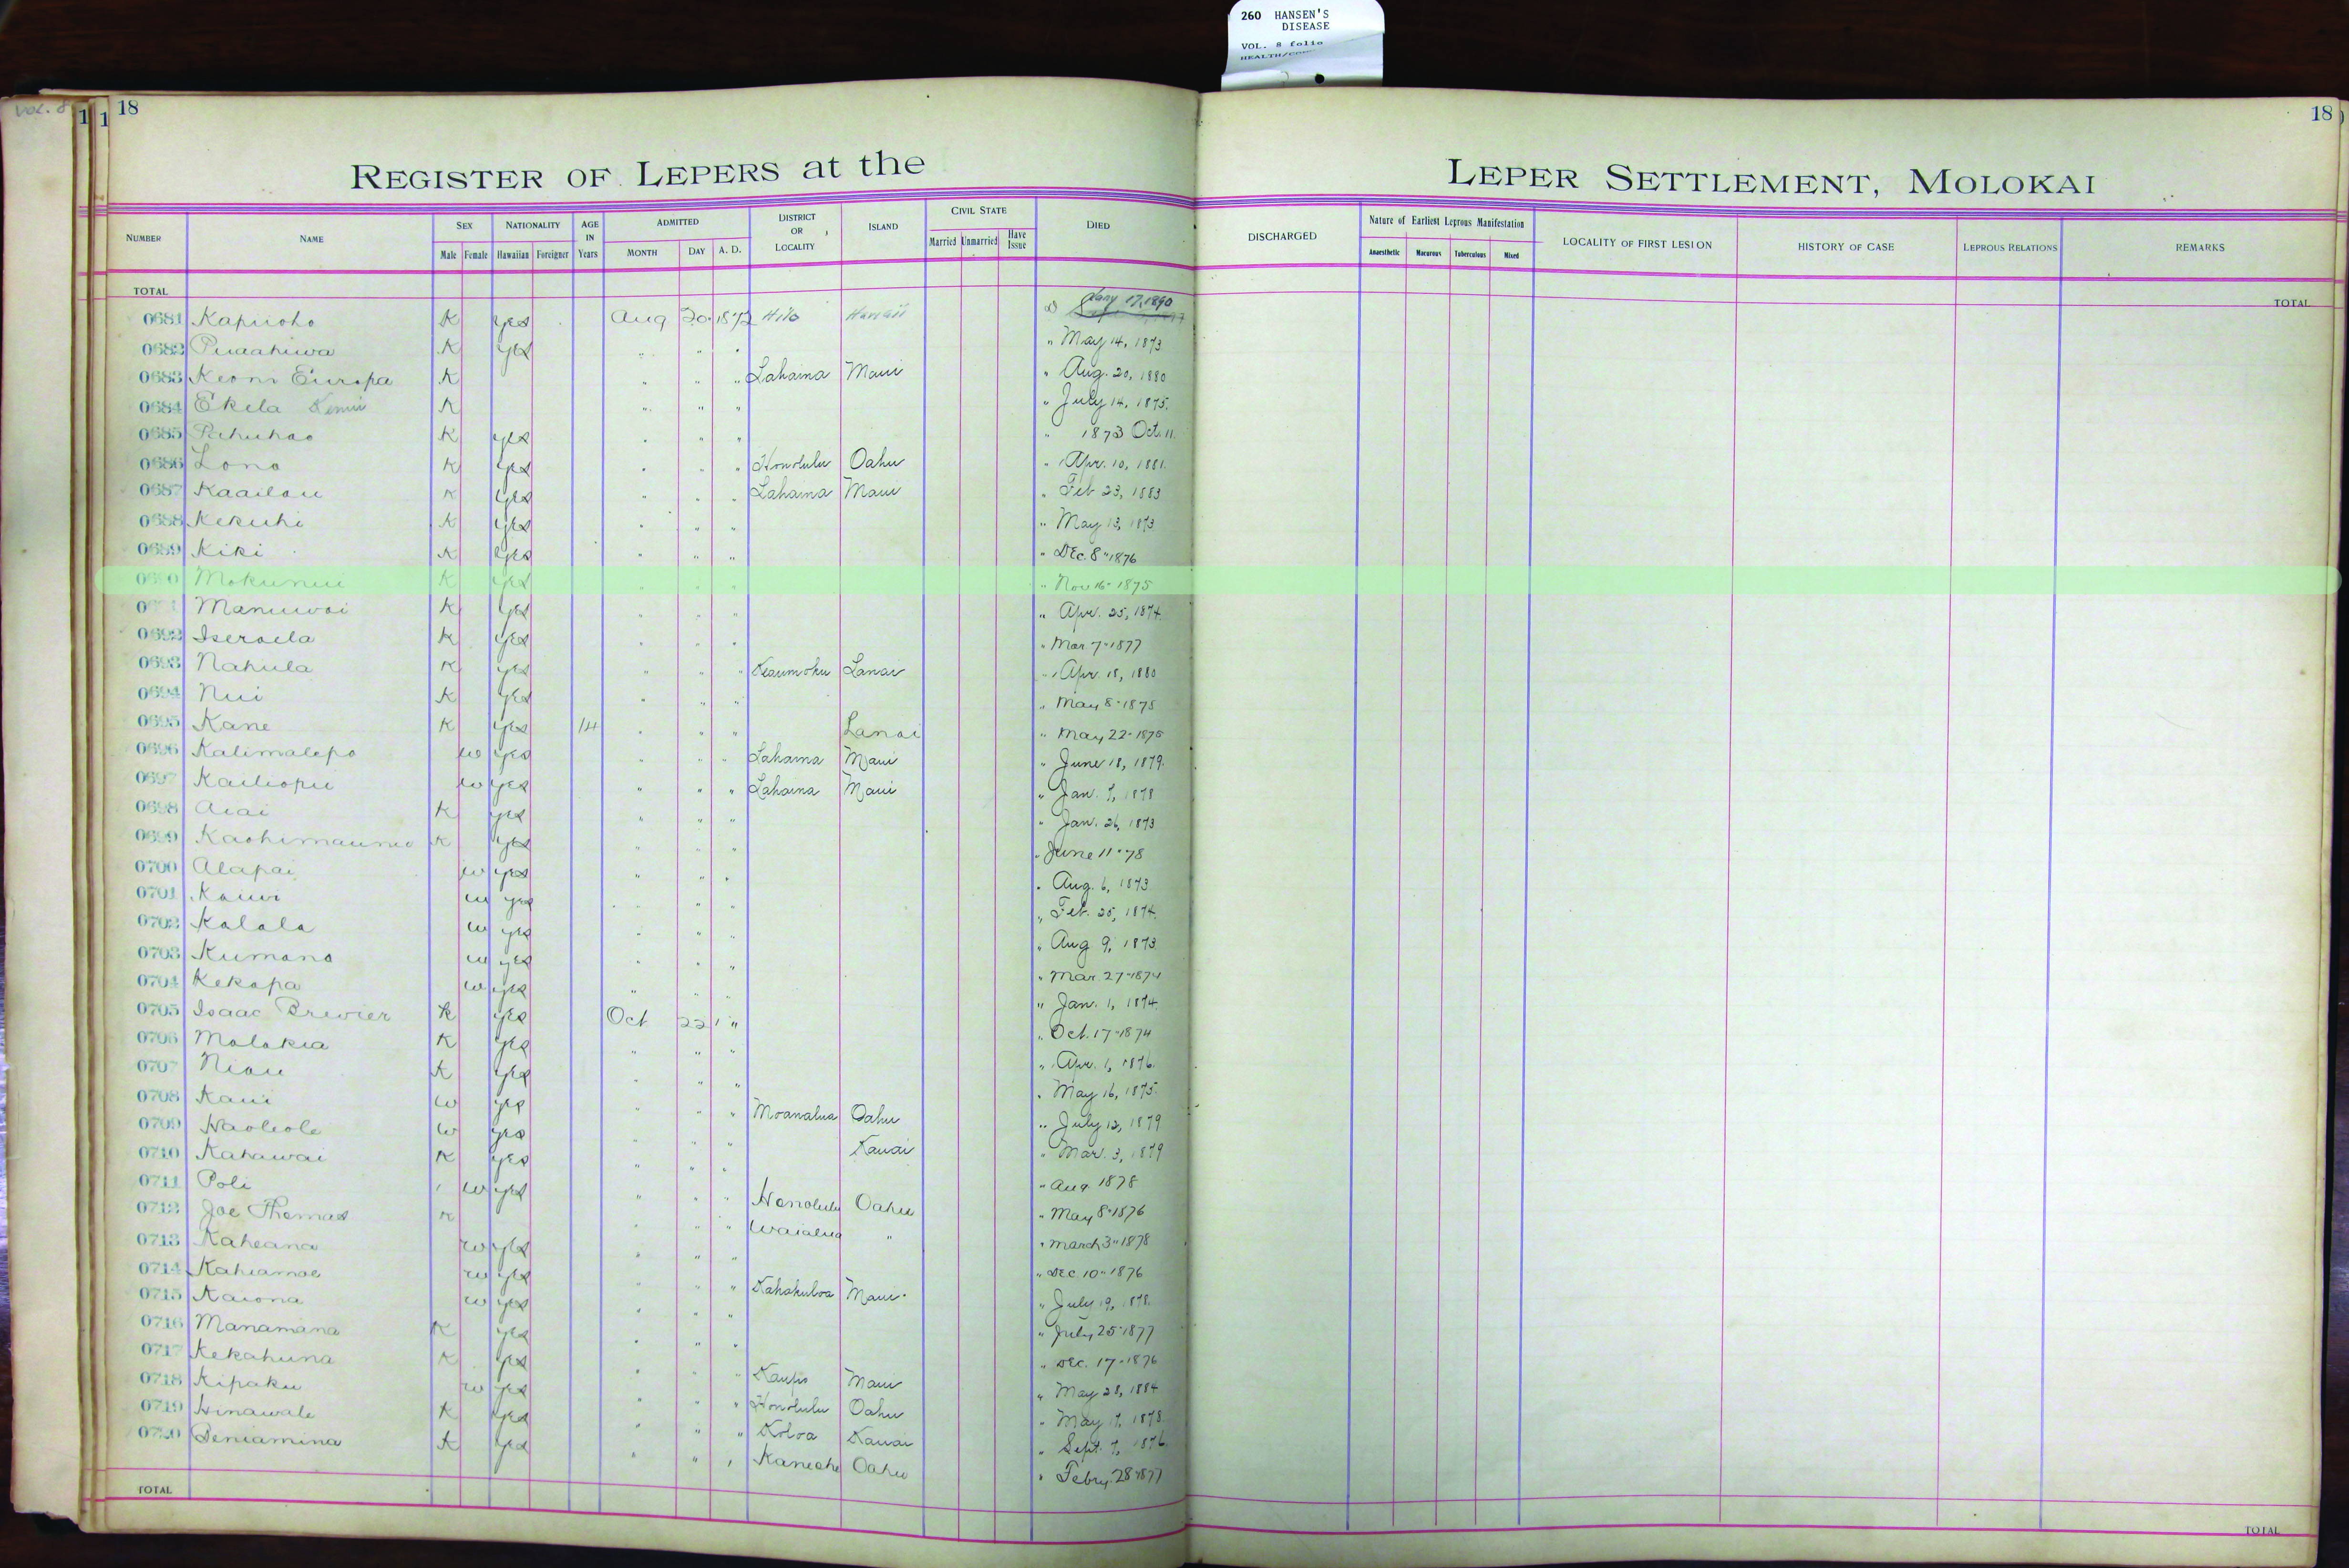 260 HANSEN'S
DISEASE
VOL. 8 folio
VOL. 8
1 1 18
18
REGISTER OF LEPERS at the LEPER SETTLEMENT, MOLOKAI
NUMBER NAME SEX Male Female NATIONALITY Hawaiian Foreigner AGE IN Years ADMITTED MONTH DAY A. D. DISTRICT OR LOCALITY ISLAND CIVIL STATE Married Unmarried Have Issue DIED DISCHARGED Nature of Earliest Leprous Manifestation Anaesthetic Macurous Tuberculous Mixed LOCALITY OF FIRST LESION HISTORY OF CASE LEPROUS RELATIONS REMARKS
TOTAL TOTAL
0681 Kapuoho K yes Aug 20 1872 Hilo Hawaii Jany 17, 1890
0682 Puaahiwa K yes " " " " May 14, 1873
0683 Keoni Europa K " " " Lahaina Maui " Aug. 20, 1880
0684 Ekela K " " " " July 14, 1875.
0685 Pahuhao K yes " " " " 1873 Oct. 11.
0686 Lono K yes " " " Honolulu Oahu " Apr. 10, 1881.
0687 Kaailau K yes " " " Lahaina Maui " Feb 23, 1883
0688 Kekuhi K yes " " " " May 13, 1873
0689 Kiki K yes " " " " Dec. 8" 1876
0690 Mokunui K yes " " " " Nov 16" 1875
Manuwai K yes " " " " Apr. 25, 1874.
0692 Iseraela K yes " " " " Mar. 7" 1877
0693 Nahula K yes " " " Keaumoku Lanai " Apr. 18, 1880
0694 Nui K yes " " " " May 8" 1875
0695 Kane K yes 14 " " " Lanai " May 22" 1875
0696 Kalimalepo w yes " " " Lahaina Maui " June 18, 1879.
0697 Kailiopu w yes " " " Lahaina Maui " Jan. 7, 1878
0698 Aiai K yes " " " " Jan. 26, 1873
0699 K yes " " " " June 11" 78
0700 Alapai w yes " " " " Aug. 6, 1873
0701 Kauwi w yes " " " " Feb. 25, 1874.
0702 Kalala w yes " " " " Aug 9, 1873.
0703 Kumano w yes " " " " Mar. 27" 1874
0704 Kekapa w yes " " " " Jan. 1, 1874.
0705 Isaac Brewier K yes Oct 22 " " Oct. 17" 1874
0706 Molokia K yes " " " " Apr. 1, 1876.
0707 Niau K yes " " " " May 16, 1875.
0708 Kaui w yes " " " Moanalua Oahu " July 12, 1879
0709 Haoleole w yes " " " Kauai " Mar. 3, 1879
0710 Kahawai K yes " " " " Aug 1878
0711 Poli w yes " " " Honolulu Oahu " May 8" 1876
0712 Joe Thomas K " " " Waialua " " March 3" 1878
0713 Kaheana w yes " " " " Dec. 10" 1876
0714 Kahiamoe w yes " " " Kahakuloa Maui " July 19, 1878.
0715 Kaiona w yes " " " " July 25" 1877
0716 Manamana K yes " " " " Dec. 17" 1876
0717 Kekahuna K yes " " " Kaupo Maui " May 28, 1884
0718 Kipaku w yes " " " Honolulu Oahu " May 17, 1878.
0719 Hinawale K yes " " " Koloa Kauai " Sept. 7, 1876.
0720 Beniamina K yes " " " Kaneohe Oahu " Febry. 28" 1877
TOTAL TOTAL